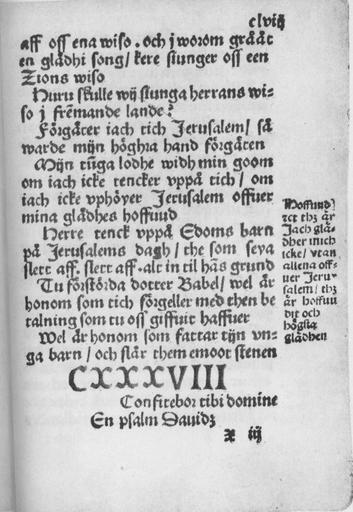 clviij
aff oss ena wiso . och j worom gråååt
en glådhi song / kere siunger oss een
Zions wiso
Huru skulle wij siunga herrans wi-
so j fremande lande?
Förgåter iach tich Jerusalem / så
warde mijn höghra hand förgåten
Mijn tūga lodhe widh min goom
om iach icke tencker vppå tich / om
iach icke vphöyer Jerusalem offuer
mina glådhes hoffuud
Herre tenck vppå Edoms barn
på Jerusalems dagh / the som seya
slett aff. slett aff. alt in til hās grund
Tu förstörda dotter Babel / wel år
honom som tich förgeller med then be
talning som tu oss giffuit haffuer
Wel år honom som fattar tijn vn-
ga barn / och slår them emoot stenen
Hoffuud)
tet thz år
Jach glå-
dher mich
icke / vtan
allena off-
uer Jeru-
salem / thz
år hoffuu
dit och
högsta
glådhen
CXXXVIII
Confitebor tibi domine
En psalm Dauidz
x iij